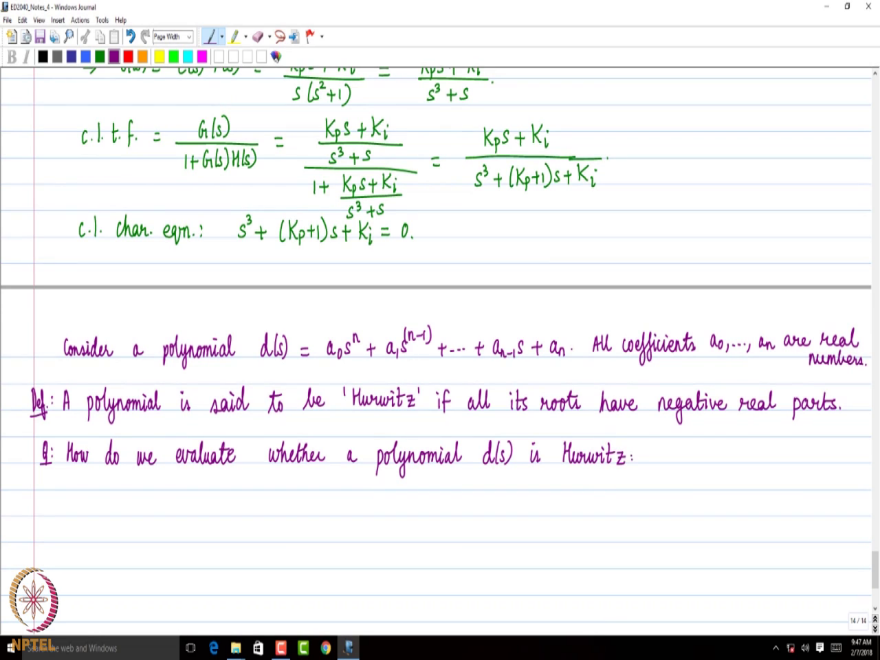 ED2040_Notes_4 - Windows Journal
File Edit View Insert Actions Tools Help
Page Width
B I
s(s²+1) s³+s
c.l.t.f. = G(s) / 1+G(s)H(s) = (Kps+Ki / s³+s) / (1+ Kps+Ki / s³+s) = Kps+Ki / s³+(Kp+1)s+Ki.
c.l. char. eqn.: s³+ (Kp+1)s+Ki = 0.
Consider a polynomial d(s) = a₀sⁿ + a₁s⁽ⁿ⁻¹⁾ +...+ aₙ₋₁s + aₙ. All coefficients a₀,..., aₙ are real numbers.
Def.: A polynomial is said to be 'Hurwitz' if all its roots have negative real parts.
Q: How do we evaluate whether a polynomial d(s) is Hurwitz:
14 / 14
NPTEL
the web and Windows
9:47 AM
2/7/2018